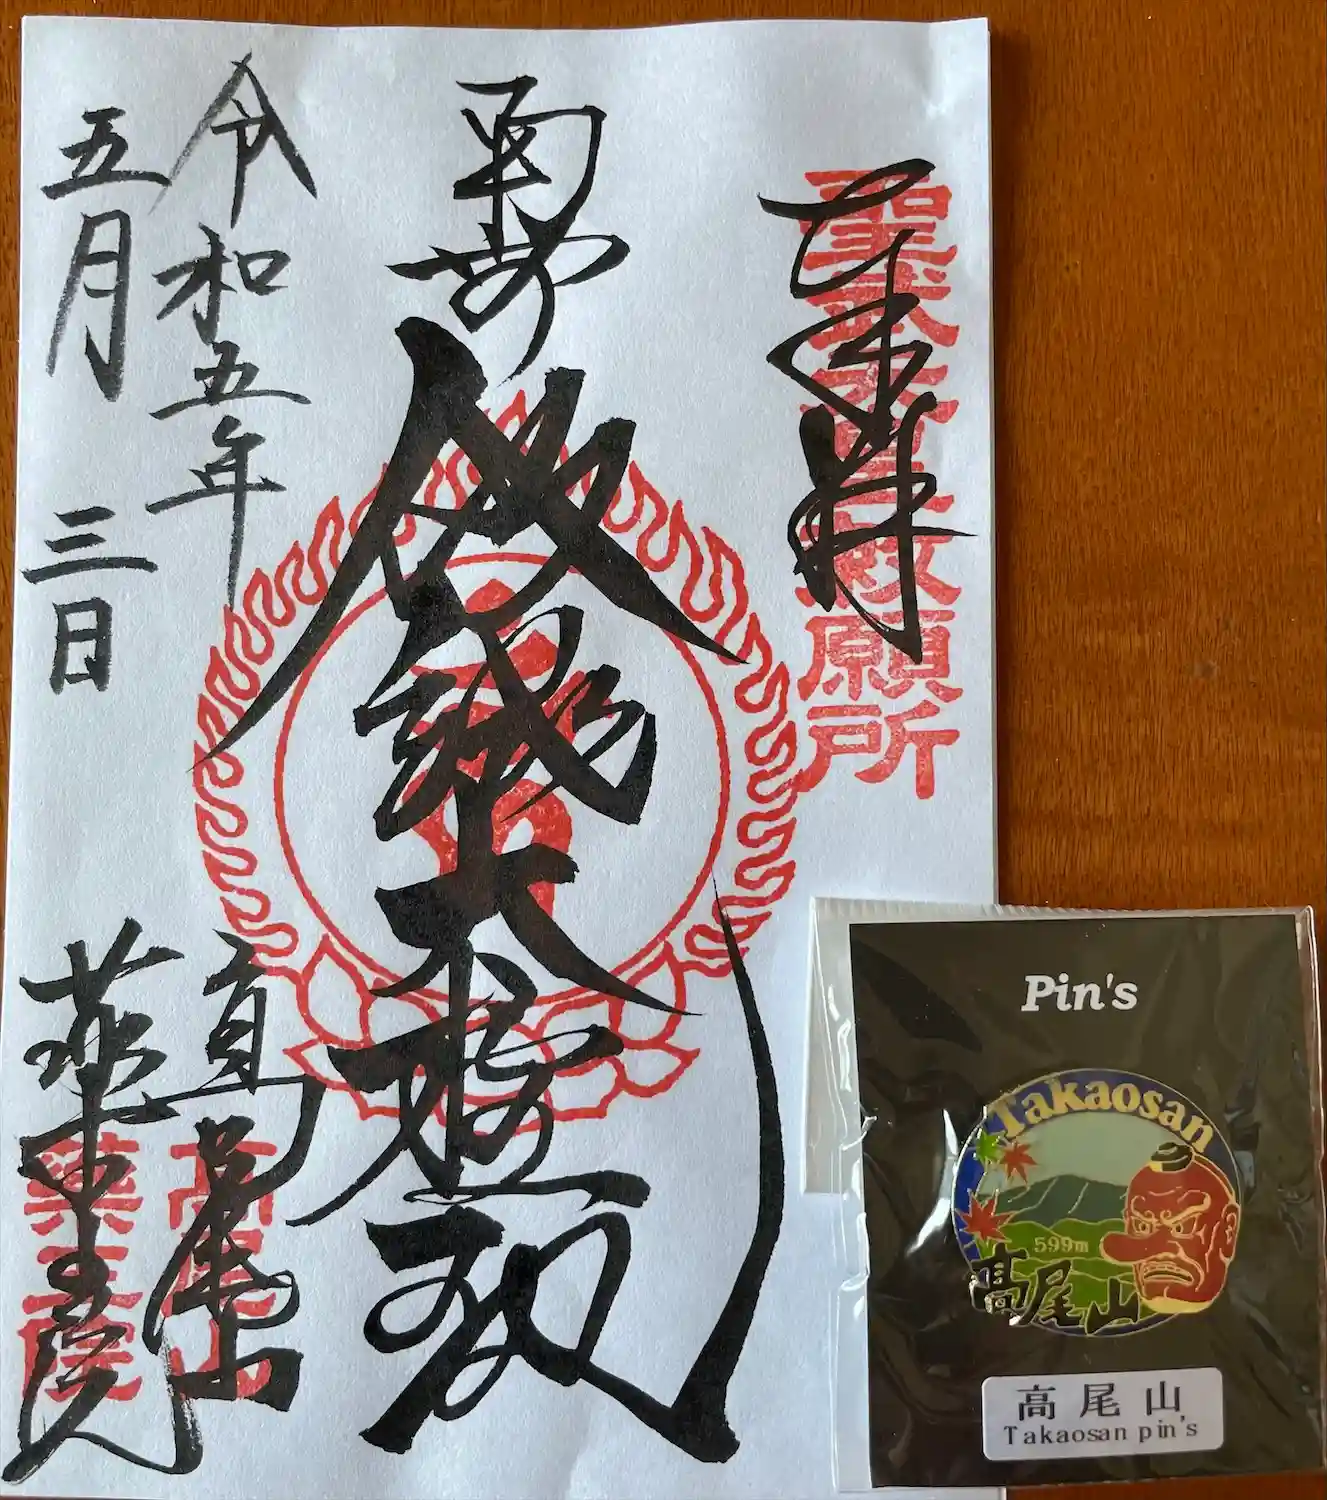 奉拝
聖武天皇勅願所
南無飯縄大権現
令和五年
五月三日
高尾山
薬王院
高尾山
薬王院
Pin's
Takaosan
599m
高尾山
高尾山
Takaosan pin's